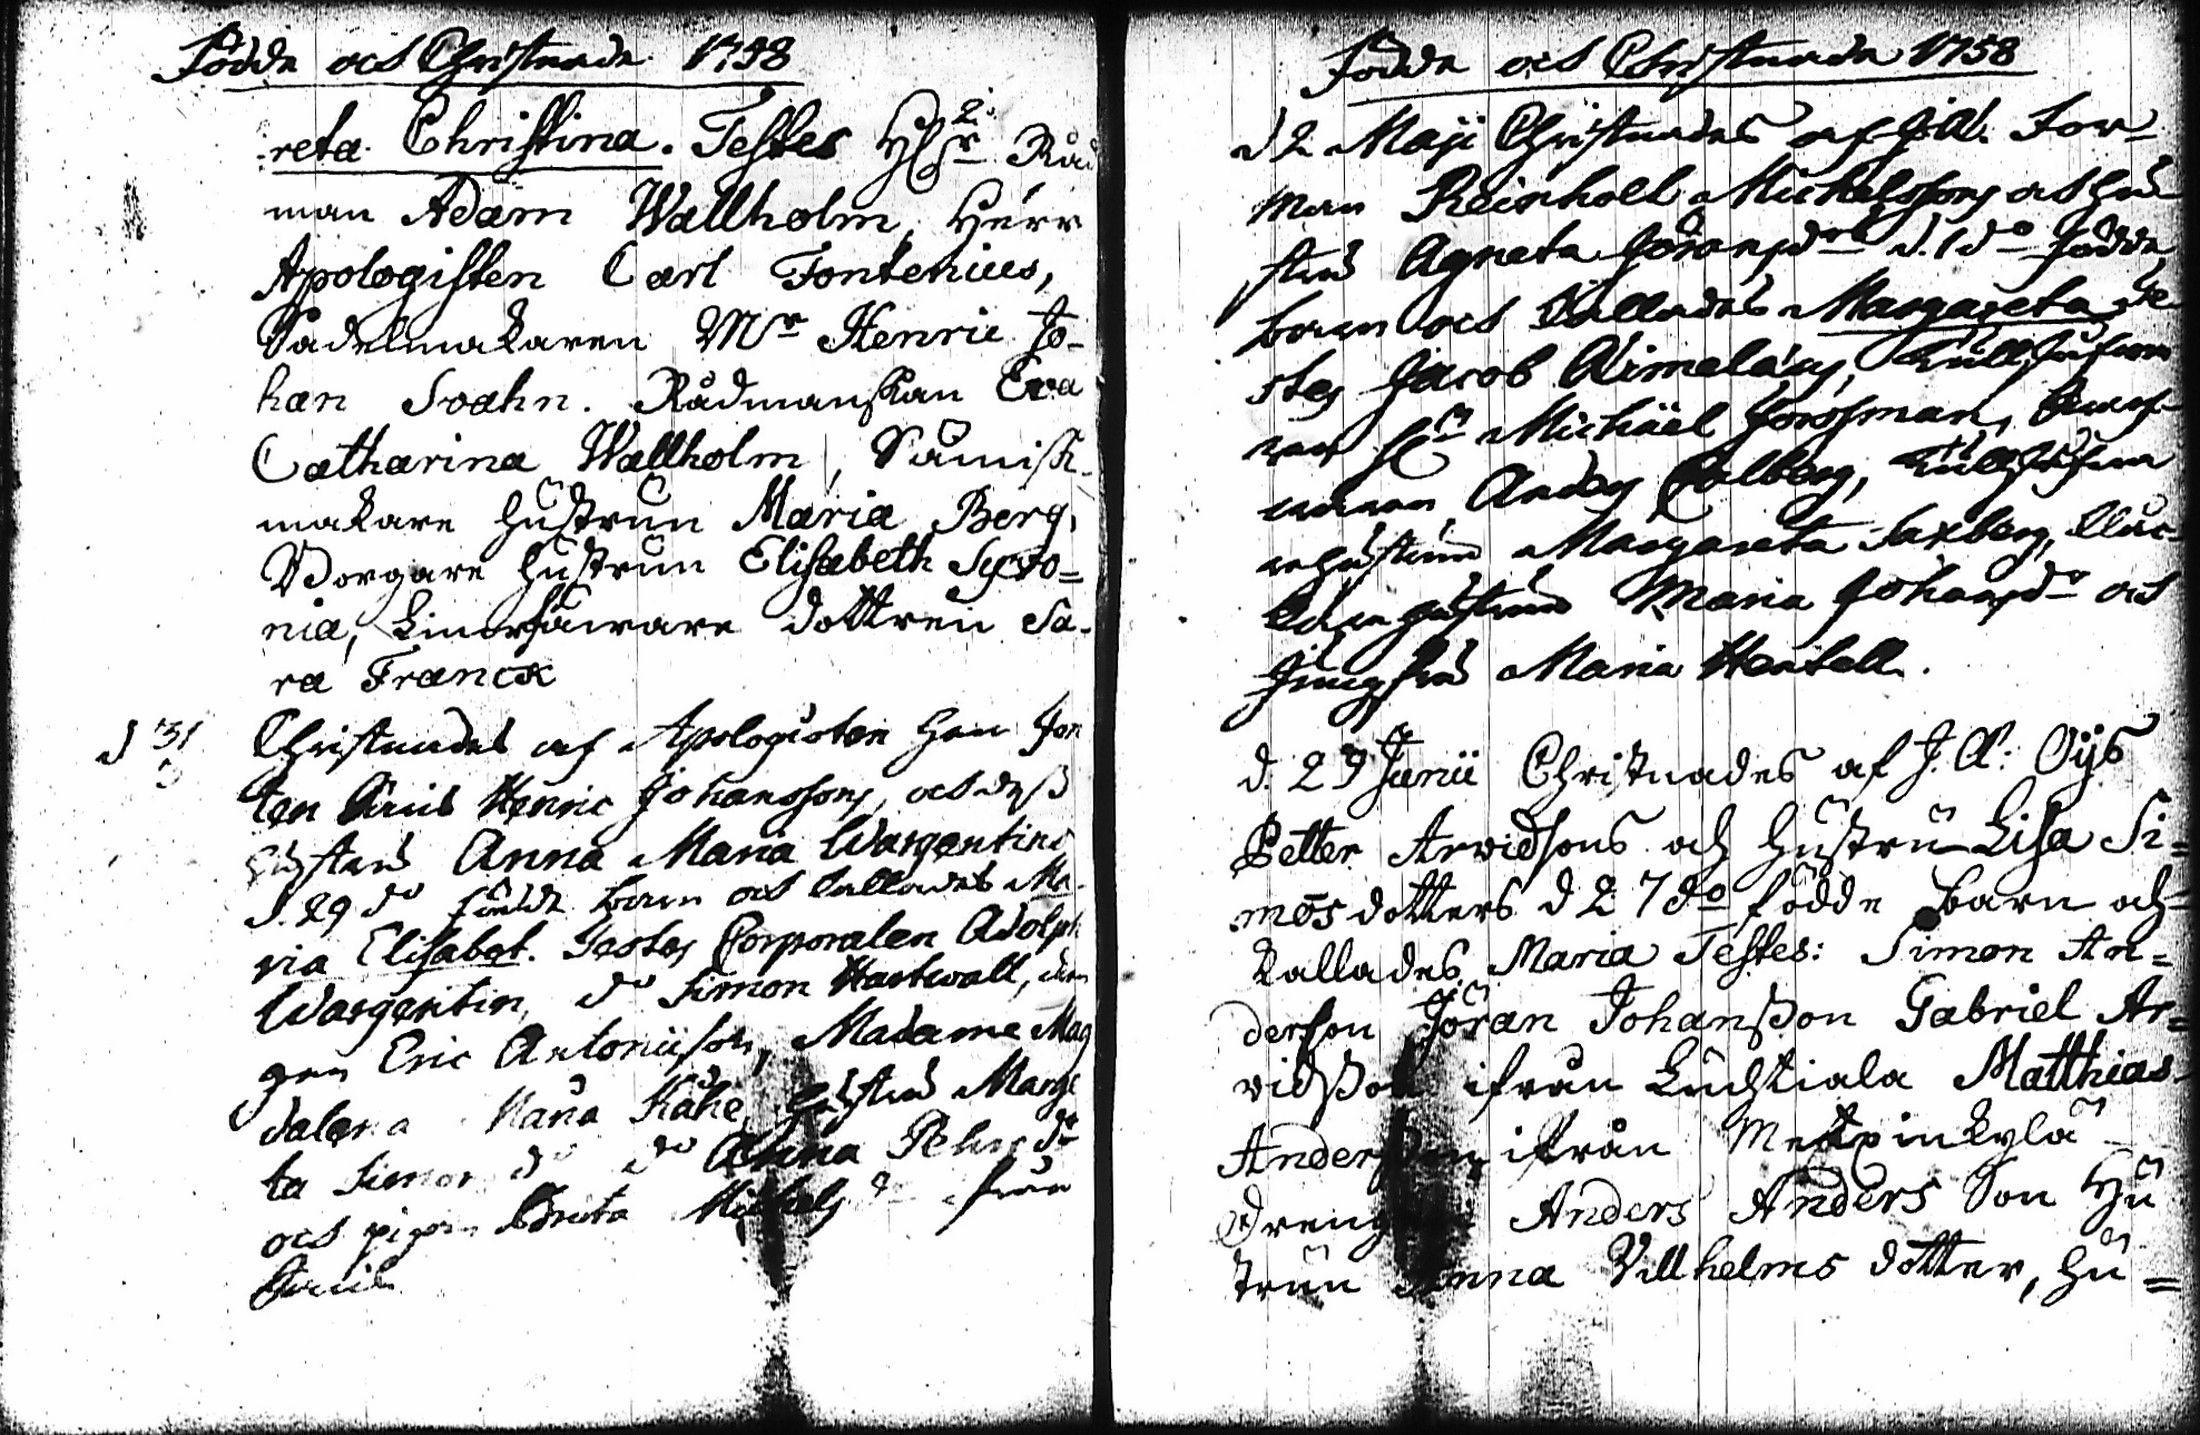 Födde och Christnade 1758
reta Christina. Testes Hr Råd
man Adam Wallholm, Herr
Apologisten Carl Fontenius,
Sadelmakaren Mr Henric Jo-
han Svahn. Rådmanskan Eva
Catharina Wallholm, Sämisk-
makare hustrun Maria Berg,
Borgare hustrun Elisabeth Sydo=
nia, Linväfware dottren Sa-
ra Franck
d 31 Christnades af Apologisten Herr Fon
ten Henric Johanssons, och dess
hustrus Anna Maria Wargentins
d. 29 do födde barn och kallades Ma-
ria Elisabet. Testes Corporalen Adolph
Wargentin, do Simon Hartwall,
gen Eric Antoniison, Madame Mag
dalena Maria Kåhe, hustru Marge
ta Simons dr do Anna Pehrs dr
och pigan Brita Michels dr från
Födde och Christnade 1758
d 2 Maji Christnades af J.W. For-
man Reinholt Michelssons och hu
strus Agneta Jöransdrs d. 1 do födde
barn och kallades Margareta Te-
stes Jacob Wimeläus, Tull
ren Hr Michäel Forssman,
Anders Calberg, Tull
rehustrun Margareta Saxberg, Kloc-
kare hustrun Maria Johansdr och
Jungfru Maria Hentell.
d. 29 Junii Christnades af J. W: Oÿs
Petter Arvidsons och hustru Lisa Si=
mos dotters d 27 do födde barn och
kallades Maria Testes: Simon An=
derson Jöran Johansson Gabriel Ar=
vidsson ifrån Luhtiala Matthias
Andersson ifrån Metzpinkylä
Drengen Anders Anders Son Hu
strun Anna Villhelms dotter, Hu=